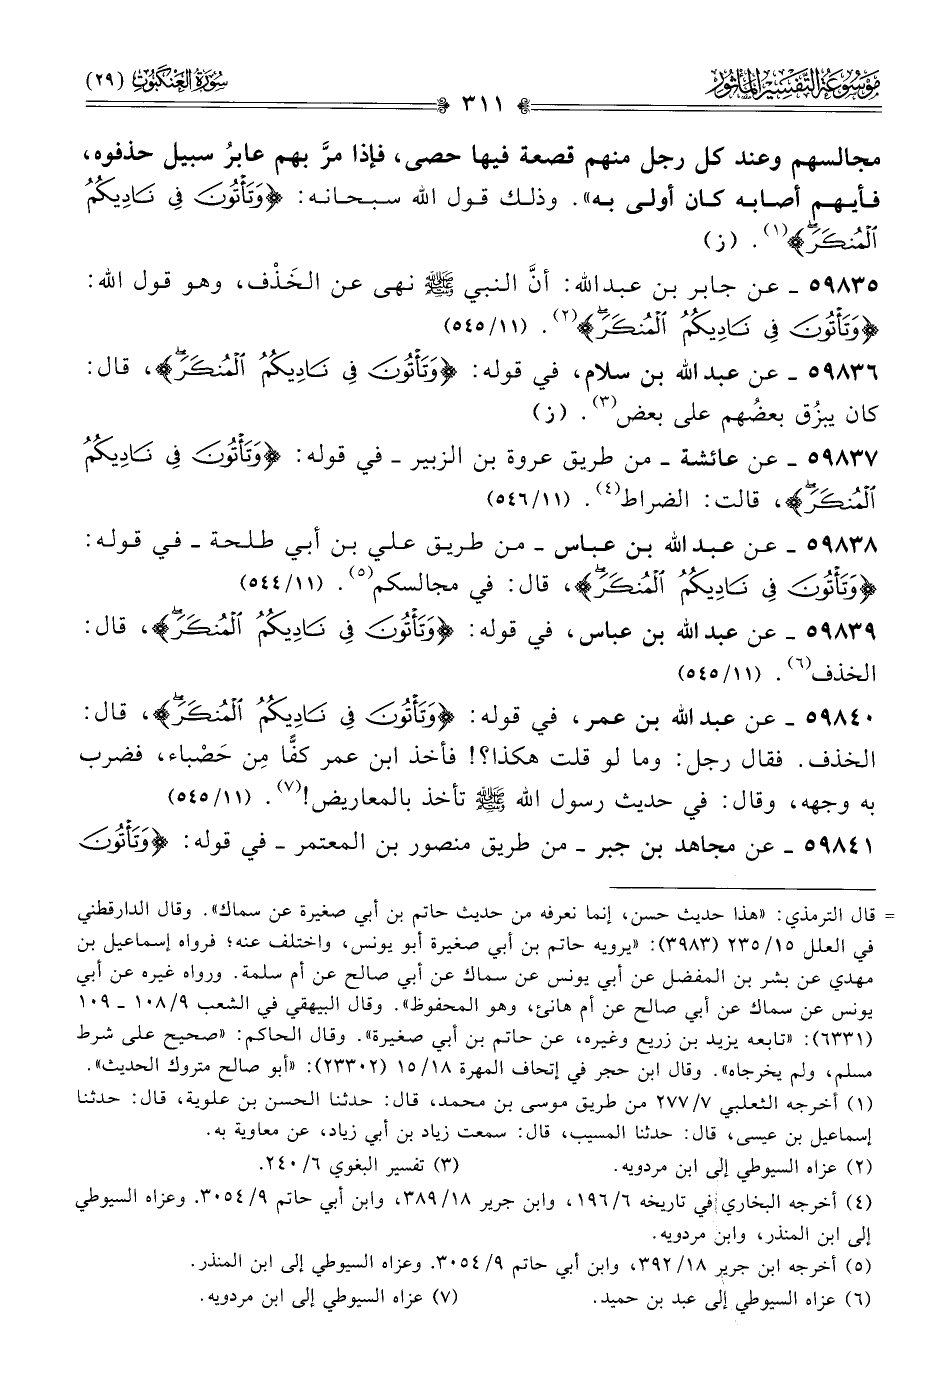 موسوعة التفسير المأثور
سورة العنكبوت (٢٩)
٣١١
مجالسهم وعند كل رجل منهم قصعة فيها حصى، فإذا مرَّ بهم عابرُ سبيل حذفوه،
فأيهم أصابه كان أولى به». وذلك قول الله سبحانه: ﴿وَتَأْتُونَ فِي نَادِيكُمُ
ٱلْمُنكَرَۖ﴾(١). (ز)
٥٩٨٣٥ ـ عن جابر بن عبدالله: أنَّ النبي ﷺ نهى عن الخَذْف، وهو قول الله:
﴿وَتَأْتُونَ فِي نَادِيكُمُ ٱلْمُنكَرَۖ﴾(٢). (٥٤٥/١١)
٥٩٨٣٦ ـ عن عبدالله بن سلام، في قوله: ﴿وَتَأْتُونَ فِي نَادِيكُمُ ٱلْمُنكَرَۖ﴾، قال:
كان يبزُق بعضُهم على بعض(٣). (ز)
٥٩٨٣٧ ـ عن عائشة ـ من طريق عروة بن الزبير ـ في قوله: ﴿وَتَأْتُونَ فِي نَادِيكُمُ
ٱلْمُنكَرَۖ﴾، قالت: الضراط(٤). (٥٤٦/١١)
٥٩٨٣٨ ـ عن عبدالله بن عباس ـ من طريق علي بن أبي طلحة ـ في قوله:
﴿وَتَأْتُونَ فِي نَادِيكُمُ ٱلْمُنكَرَۖ﴾، قال: في مجالسكم(٥). (٥٤٤/١١)
٥٩٨٣٩ ـ عن عبدالله بن عباس، في قوله: ﴿وَتَأْتُونَ فِي نَادِيكُمُ ٱلْمُنكَرَۖ﴾، قال:
الخذف(٦). (٥٤٥/١١)
٥٩٨٤٠ ـ عن عبدالله بن عمر، في قوله: ﴿وَتَأْتُونَ فِي نَادِيكُمُ ٱلْمُنكَرَۖ﴾، قال:
الخذف. فقال رجل: وما لو قلت هكذا؟! فأخذ ابن عمر كفًّا مِن حَصْباء، فضرب
به وجهه، وقال: في حديث رسول الله ﷺ تأخذ بالمعاريض!(٧). (٥٤٥/١١)
٥٩٨٤١ ـ عن مجاهد بن جبر ـ من طريق منصور بن المعتمر ـ في قوله: ﴿وَتَأْتُونَ
= قال الترمذي: «هذا حديث حسن، إنما نعرفه من حديث حاتم بن أبي صغيرة عن سماك». وقال الدارقطني
في العلل ٢٣٥/١٥ (٣٩٨٣): «يرويه حاتم بن أبي صغيرة أبو يونس، واختلف عنه؛ فرواه إسماعيل بن
مهدي عن بشر بن المفضل عن أبي يونس عن سماك عن أبي صالح عن أم سلمة. ورواه غيره عن أبي
يونس عن سماك عن أبي صالح عن أم هانئ، وهو المحفوظ». وقال البيهقي في الشعب ١٠٨/٩ ـ ١٠٩
(٦٣٣١): «تابعه يزيد بن زريع وغيره، عن حاتم بن أبي صغيرة». وقال الحاكم: «صحيح على شرط
مسلم، ولم يخرجاه». وقال ابن حجر في إتحاف المهرة ١٥/١٨ (٢٣٣٠٢): «أبو صالح متروك الحديث».
(١) أخرجه الثعلبي ٢٧٧/٧ من طريق موسى بن محمد، قال: حدثنا الحسن بن علوية، قال: حدثنا
إسماعيل بن عيسى، قال: حدثنا المسيب، قال: سمعت زياد بن أبي زياد، عن معاوية به.
(٢) عزاه السيوطي إلى ابن مردويه.
(٣) تفسير البغوي ٢٤٠/٦.
(٤) أخرجه البخاري في تاريخه ١٩٦/٦، وابن جرير ٣٨٩/١٨، وابن أبي حاتم ٣٠٥٤/٩. وعزاه السيوطي
إلى ابن المنذر، وابن مردويه.
(٥) أخرجه ابن جرير ٣٩٢/١٨، وابن أبي حاتم ٣٠٥٤/٩. وعزاه السيوطي إلى ابن المنذر.
(٦) عزاه السيوطي إلى عبد بن حميد.
(٧) عزاه السيوطي إلى ابن مردويه.